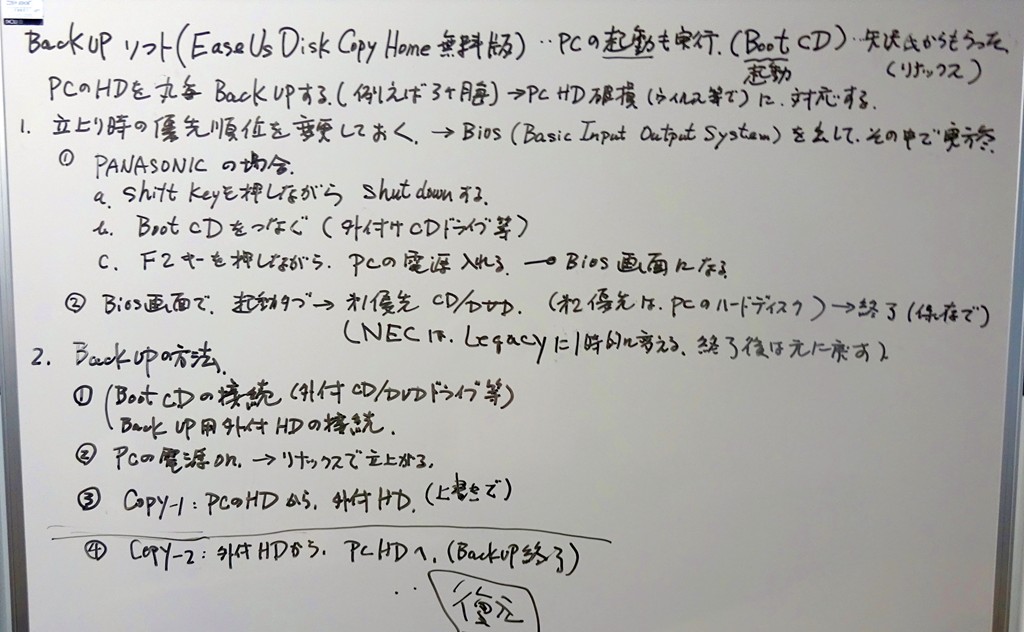 Back UP ソフト(EaseUs Disk Copy Home 無料版)‥PCの起動も実行.(Boot CD)‥矢吹氏からもらった.
起動
(リナックス)
PCのHDを丸毎 Back UPする.(例えば3ケ月毎)→PC HD破損(ウイルス等で)に対応する.
1. 立上り時の優先順位を変更しておく.→Bios(Basic Input Output System)を出して、その中で変える.
① PANASONICの場合.
a. Shift Keyを押しながら Shut downする.
b. Boot CDをつなぐ(外付けCDドライブ等)
c. F2キーを押しながら. PCの電源入れる. →Bios画面になる
② Bios画面で. 起動タブ→ 第1優先 CD/DVD. (第2優先は、PCのハードディスク)→終了(保存で)
(NECは、Legacyに1時的に変える、終了後は元に戻す).
2. Back upの方法.
① Boot CDの接続(外付CD/DVDドライブ等)
Back UP用外付HDの接続.
② PCの電源on. →リナックスで立上がる.
③ Copy-1:PCのHDから. 外付HD.(上書きで)
④ Copy-2:外付HDから. PC HDへ.(Back UP終了)
‥ 復元